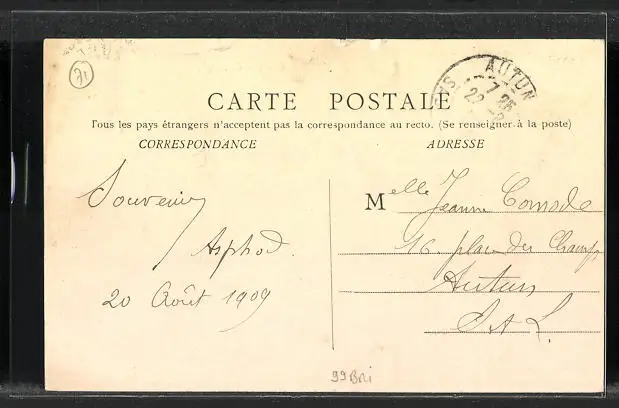 31
AUTUN
7 25
22 -8
CARTE POSTALE
Tous les pays étrangers n'acceptent pas la correspondance au recto. (Se renseigner à la poste)
CORRESPONDANCE
ADRESSE
Souvenir
Asphod
20 Août 1909
Melle Jeanne
16 place du Champ
Autun
S A L.
99 Bri